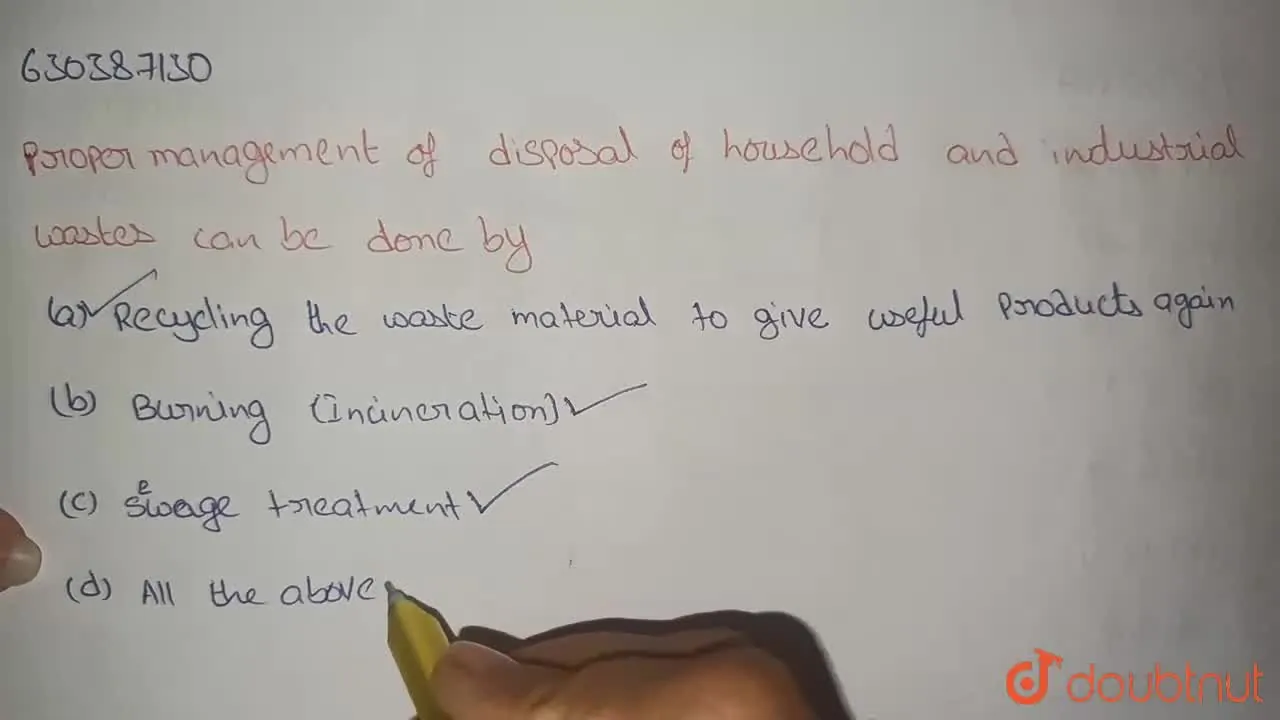 630387130
Proper management of disposal of household and industrial
wastes can be done by
(a) Recycling the waste material to give useful products again
(b) Burning (Incineration)
(c) Sewage treatment
(d) All the above
doubtnut